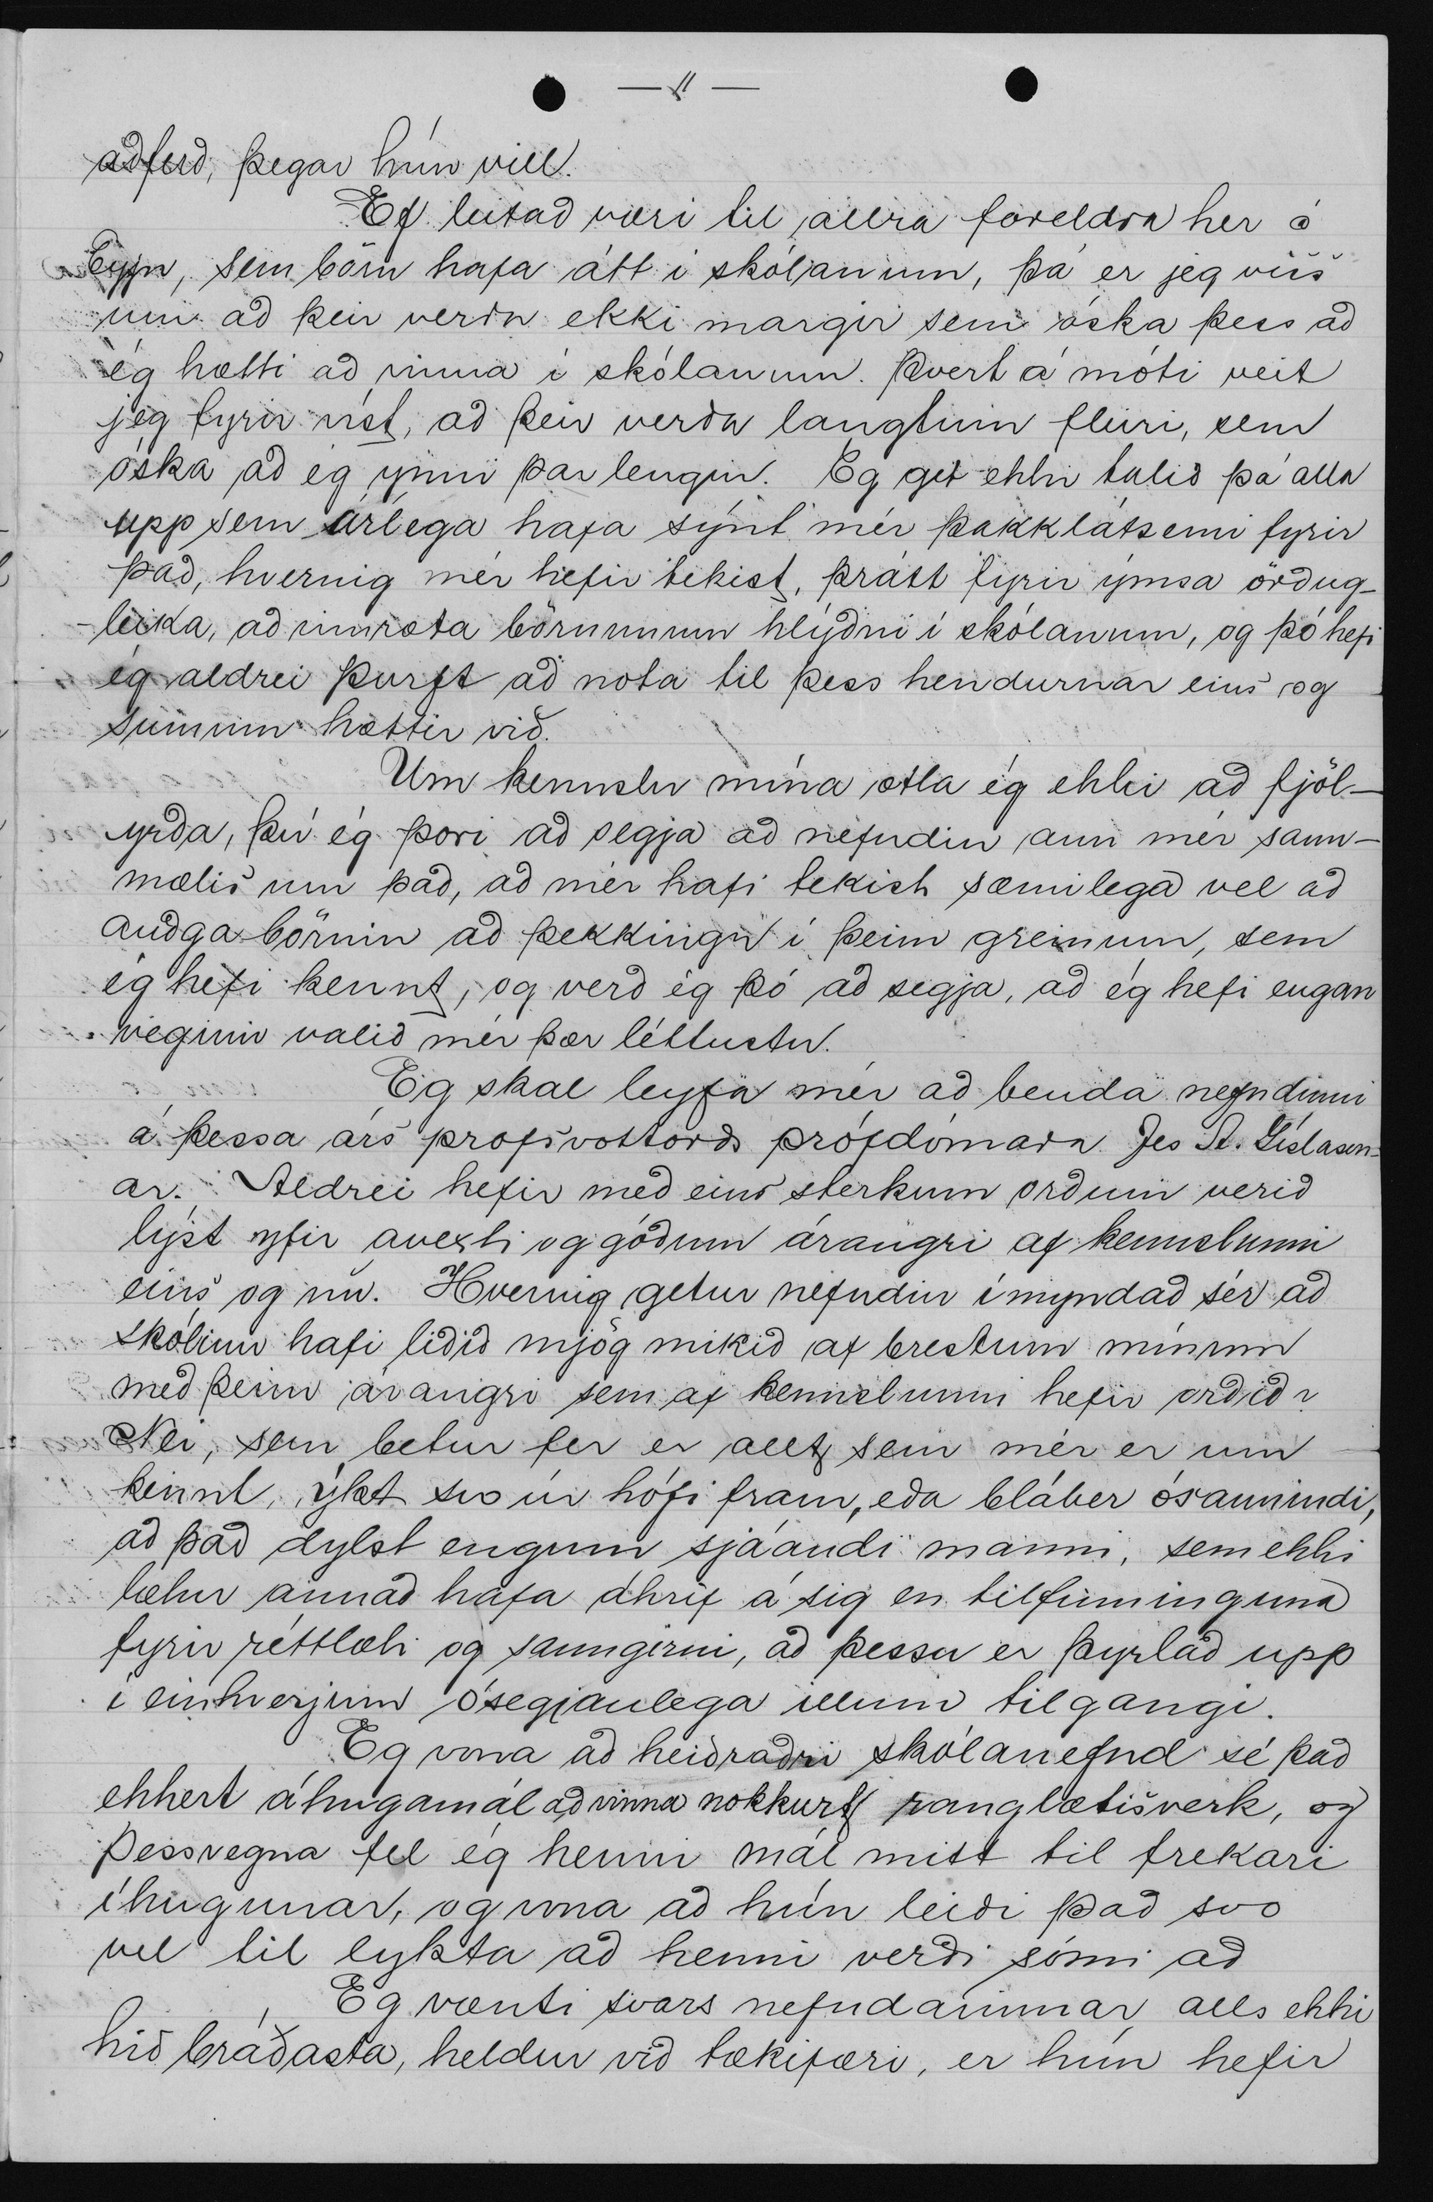 — 11 —
aðferð, þegar hún vill.
Ef leitað væri til allra foreldra her á
Eyju, sem börn hafa átt í skólanum, þá er jeg viss
um að þeir verða ekki margir sem óska þess að
ég hætti að vinna í skólanum. Þvert á móti veit
jeg fyrir víst, að þeir verða langtum fleiri, sem
óska að ég ynni þar lengur. Eg get ekki talið þá alla
upp sem árlega hafa sýnt mér þakklátsemi fyrir
það, hvernig mér hefir tekist, þrátt fyrir ýmsa örðug-
-leika, að innræta börnunum hlýðni í skólanum, og þó hefi
ég aldrei þurft að nota til þess hendurnar eins og
sumum hættir við.
Um kennslu mína ætla ég ekki að fjöl-
yrða, því ég þori að segja að nefndin ann mér sann-
mælis um það, að mér hafi tekist sæmilega vel að
auðga börnin að þekkingu í þeim greinum, sem
ég hefi kennt, og verð ég þó að segja, að ég hefi engan
veginn valið mér þær léttustu.
Eg skal leyfa mér að benda nefndinni
á þessa árs prófsvottorð prófdómara Jes A. Gíslason-
ar. Aldrei hefir með eins sterkum orðum verið
lýst yfir avexti og góðum árangri af kennslunni
eins og nú. Hvernig getur nefndin ímyndað sér að
skólinn hafi liðið mjög mikið af brestum mínum
með þeim árangri sem af kennslunni hefir orðið?
Nei, sem betur fer er allt sem mér er um
kennt, ýkt svo úr hófi fram, eða bláber ósannindi,
að það dylst engum sjáandi manni, sem ekki
lætur annað hafa áhrif á sig en tilfinninguna
fyrir réttlæti og sanngirni, að þessu er þyrlað upp
í einhverjum ósegjanlega illum tilgangi.
Eg vona að heiðraðri skólanefnd sé það
ekkert áhugamál að vinna nokkurt ranglætisverk, og
þessvegna fel ég henni mál mitt til frekari
íhugunar, og vona að hún leiði það svo
vel til lykta að henni verði sómi að
Eg vænti svars nefndarinnar alls ekki
hið bráðasta, heldur við tækifæri, er hún hefir